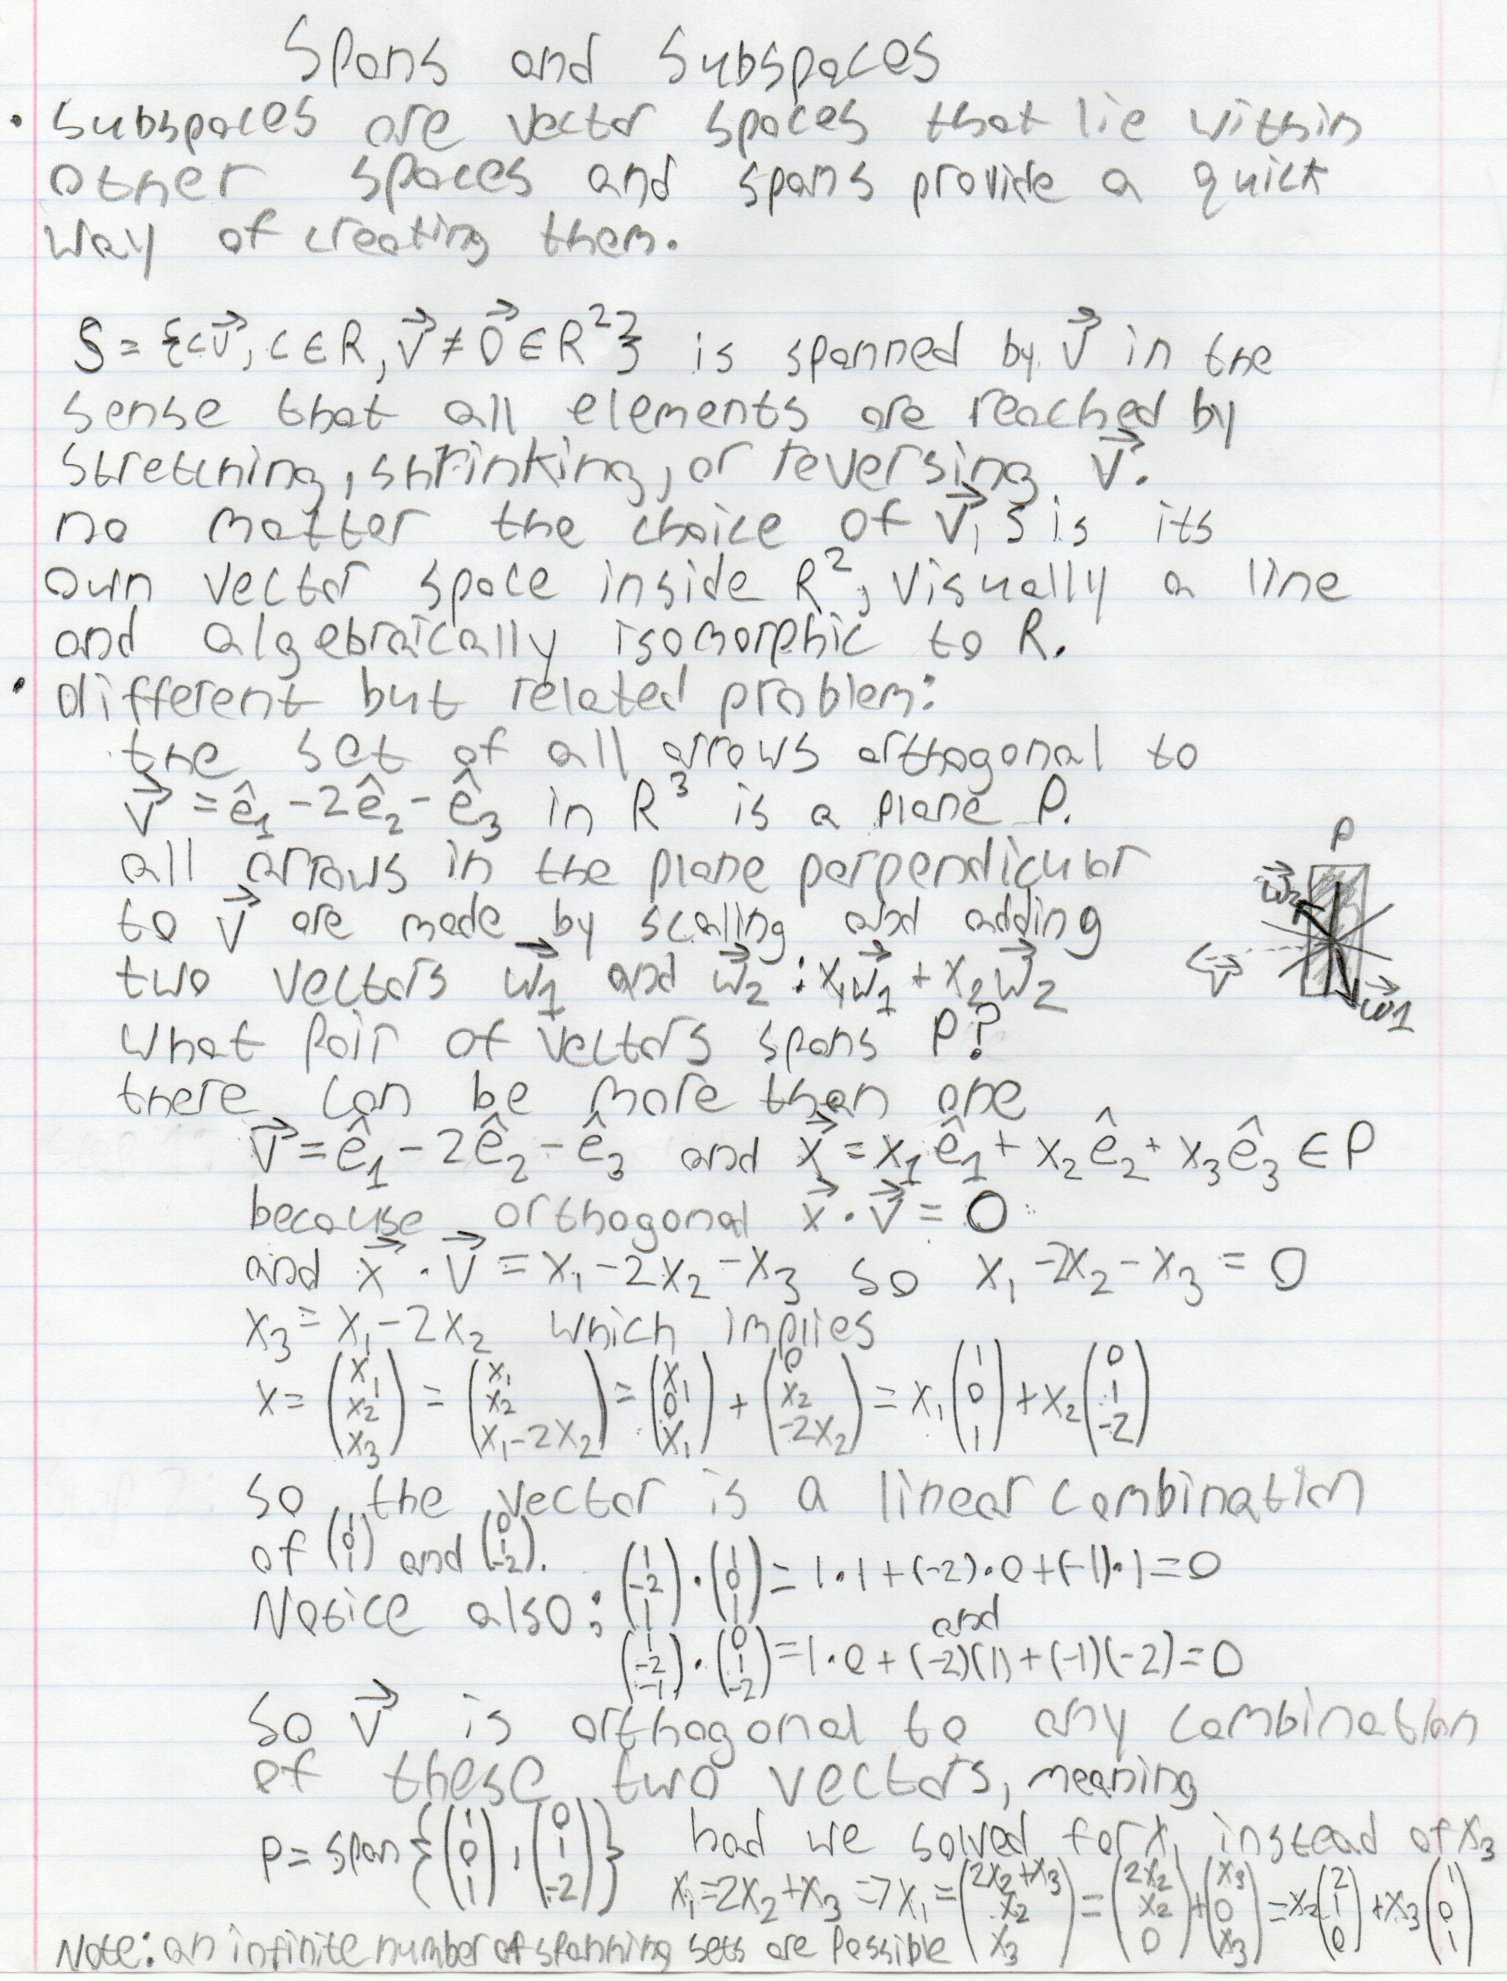 Spans and Subspaces
• Subspaces are vector spaces that lie within
other spaces and spans provide a quick
way of creating them.
S = {c\vec{v}, c ∈ R, \vec{v} ≠ \vec{0} ∈ R²} is spanned by \vec{v} in the
sense that all elements are reached by
stretching, shrinking, or reversing \vec{v}.
no matter the choice of \vec{v}, S is its
own vector space inside R², visually a line
and algebraically isomorphic to R.
• different but related problem:
the set of all arrows orthogonal to
\vec{v} = ê₁ - 2ê₂ - ê₃ in R³ is a plane P.
all arrows in the plane perpendicular
to \vec{v} are made by scaling and adding
two vectors \vec{w}₁ and \vec{w}₂ : x₁\vec{w}₁ + x₂\vec{w}₂
P
\vec{w}₂
\vec{v}
\vec{w}₁
What pair of vectors spans P?
there can be more than one
\vec{v} = ê₁ - 2ê₂ - ê₃ and \vec{x} = x₁ê₁ + x₂ê₂ + x₃ê₃ ∈ P
because orthogonal \vec{x} · \vec{v} = 0
and \vec{x} · \vec{v} = x₁ - 2x₂ - x₃ so x₁ - 2x₂ - x₃ = 0
x₃ = x₁ - 2x₂ which implies
x = (x₁ x₂ x₃) = (x₁ x₂ x₁-2x₂) = (x₁ 0 x₁) + (0 x₂ -2x₂) = x₁(1 0 1) + x₂(0 1 -2)
so the vector is a linear combination
of (1 0 1) and (0 1 -2).
Notice also: (1 -2 1) · (1 0 1) = 1·1 + (-2)·0 + (-1)·1 = 0
and
(1 -2 -1) · (0 1 -2) = 1·0 + (-2)(1) + (-1)(-2) = 0
So \vec{v} is orthogonal to any combination
of these two vectors, meaning
P = span{(1 0 1), (0 1 -2)} had we solved for x₁ instead of x₃
x₁ = 2x₂ + x₃ => x₁ = (2x₂+x₃ x₂ x₃) = (2x₂ x₂ 0) + (x₃ 0 x₃) = x₂(2 1 0) + x₃(1 0 1)
Note: an infinite number of spanning sets are possible